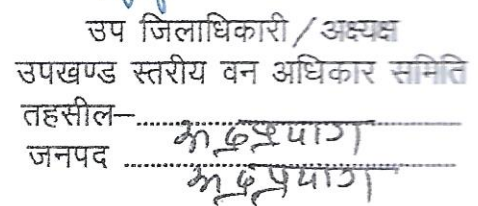 उप जिलाधिकारी / अध्यक्ष
उपखण्ड स्तरीय वन अधिकार समिति
तहसील–........रूद्रप्रयाग........
जनपद ........रूद्रप्रयाग........